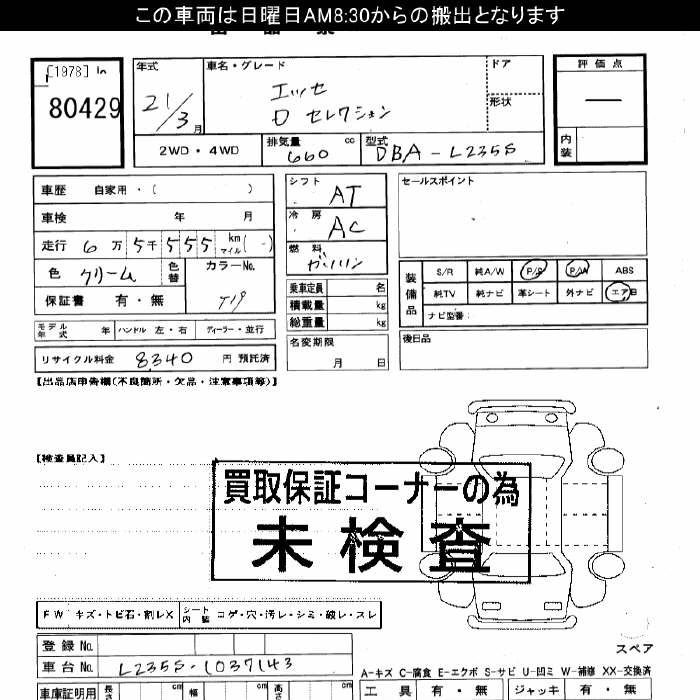 この車両は日曜日AM8:30からの搬出となります
[1978] ln
80429
年式
21/3月
車名・グレード
エッセ
D セレクション
ドア
形状
評価点
―
内装
2WD・4WD
排気量 660 cc
型式 DBA-L235S
車歴 自家用・( )
車検 年 月
走行 6万5千555 km マイル (-)
色 クリーム 色替 カラーNo. T19
保証書 有・無
モデル年式 年 ハンドル 左・右 ディーラー・並行
リサイクル料金 8340 円 預託済
シフト AT
冷房 AC
燃料 ガソリン
乗車定員 名
積載量 kg
総重量 kg
名変期限 月 日
セールスポイント
装備品
S/R 純A/W P/S P/W ABS
純TV 純ナビ 革シート 外ナビ エアB
ナビ型番:
後日品
【出品店申告欄(不良箇所・欠品・注意事項等)】
【検査員記入】
買取保証コーナーの為
未検査
FW キズ・トビ石・割レX シート内装 コゲ・穴・汚レ・シミ・破レ・スレ
登録No.
車台No. L235S-1037143
車庫証明用 長さ cm 幅 cm 高さ cm
スペア
A-キズ C-腐食 E-エクボ S-サビ U-凹ミ W-補修 XX-交換済
工具 有・無 ジャッキ 有・無